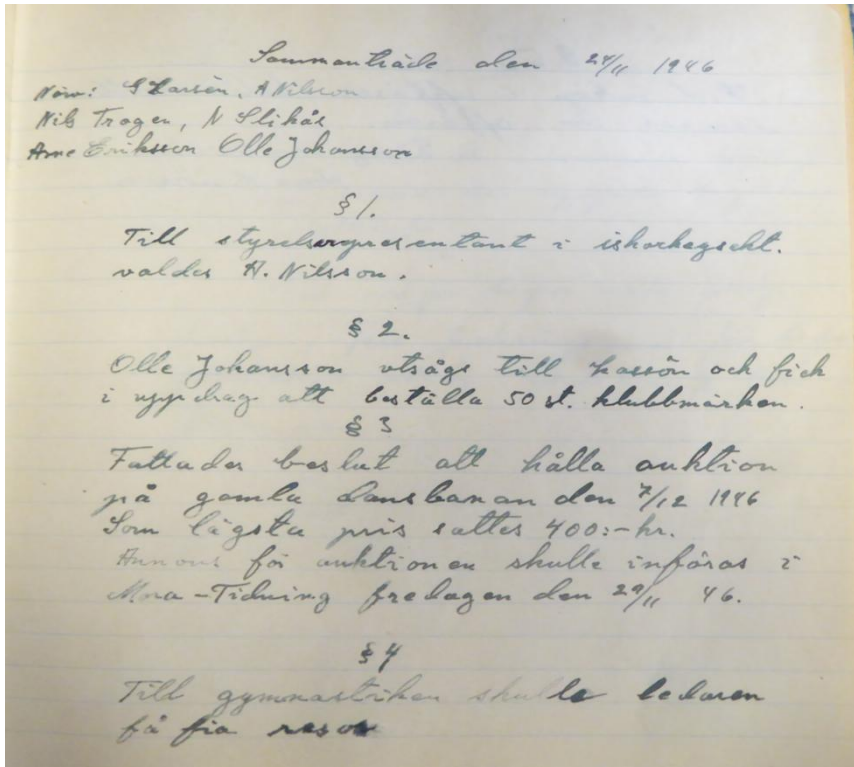 Sammanträde den 24/11 1946
Närv: G Larsén, A Nilsson
Nils Trogen, N Slikås
Arne Eriksson Olle Johansson
§ 1.
Till styrelserepresentant i ishockeysekt.
valdes A. Nilsson.
§ 2.
Olle Johansson utsågs till kassör och fick
i uppdrag att beställa 50 st. klubbmärken.
§ 3
Fattades beslut att hålla auktion
på gamla dansbanan den 7/12 1946
Som lägsta pris sattes 400:- kr.
Annons för auktionen skulle införas i
Mora-Tidning fredagen den 29/11 46.
§ 4
Till gymnastiken skulle ledaren
få fia resor